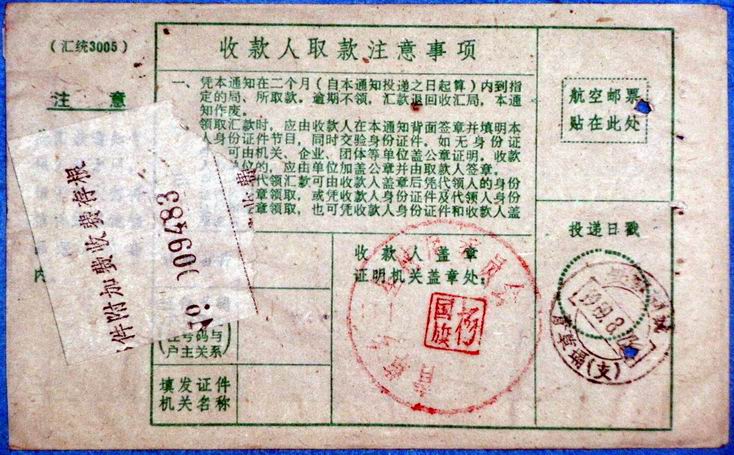 (汇统3005)
注 意
收款人取款注意事项
一、凭本通知在二个月(自本通知投递之日起算)内到指
定的局、所取款。逾期不领,汇款退回收汇局,本通
知作废。
领取汇款时,应由收款人在本通知背面签章并填明本
人身份证件节目,同时交验身份证件。如无身份证
可由机关、企业、团体等单位盖公章证明。收款
位的,应由单位加盖公章并由取款人签章。
代领汇款可由收款人盖章后凭代领人的身份
章领取,或凭收款人身份证件及代领人身份
章领取,也可凭收款人身份证件和收款人盖
航空邮票
贴在此处
投递日戳
收款人盖章
证明机关盖章处。
件附加费收费存根
№ 009483
业费
内
证号码与
户主关系
填发证件
机关名称
杨
国旗
(支)